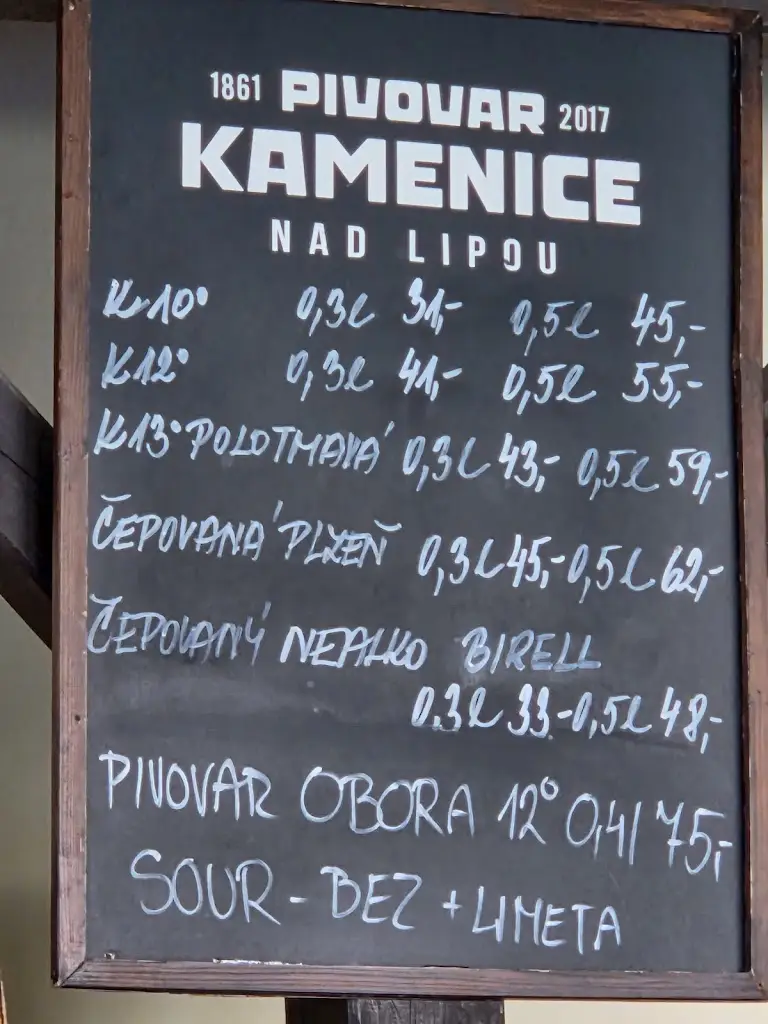 1861 PIVOVAR 2017
KAMENICE
NAD LIPOU
K10° 0,3l 31,- 0,5l 45,-
K12° 0,3l 41,- 0,5l 55,-
K13° POLOTMAVÁ 0,3l 43,- 0,5l 59,-
ČEPOVANÁ PLZEŇ 0,3l 45,- 0,5l 62,-
ČEPOVANÝ NEALKO BIRELL
0.3l 33.- 0,5l 48,-
PIVOVAR OBORA 12° 0,4l 75,-
SOUR - BEZ + LIMETA